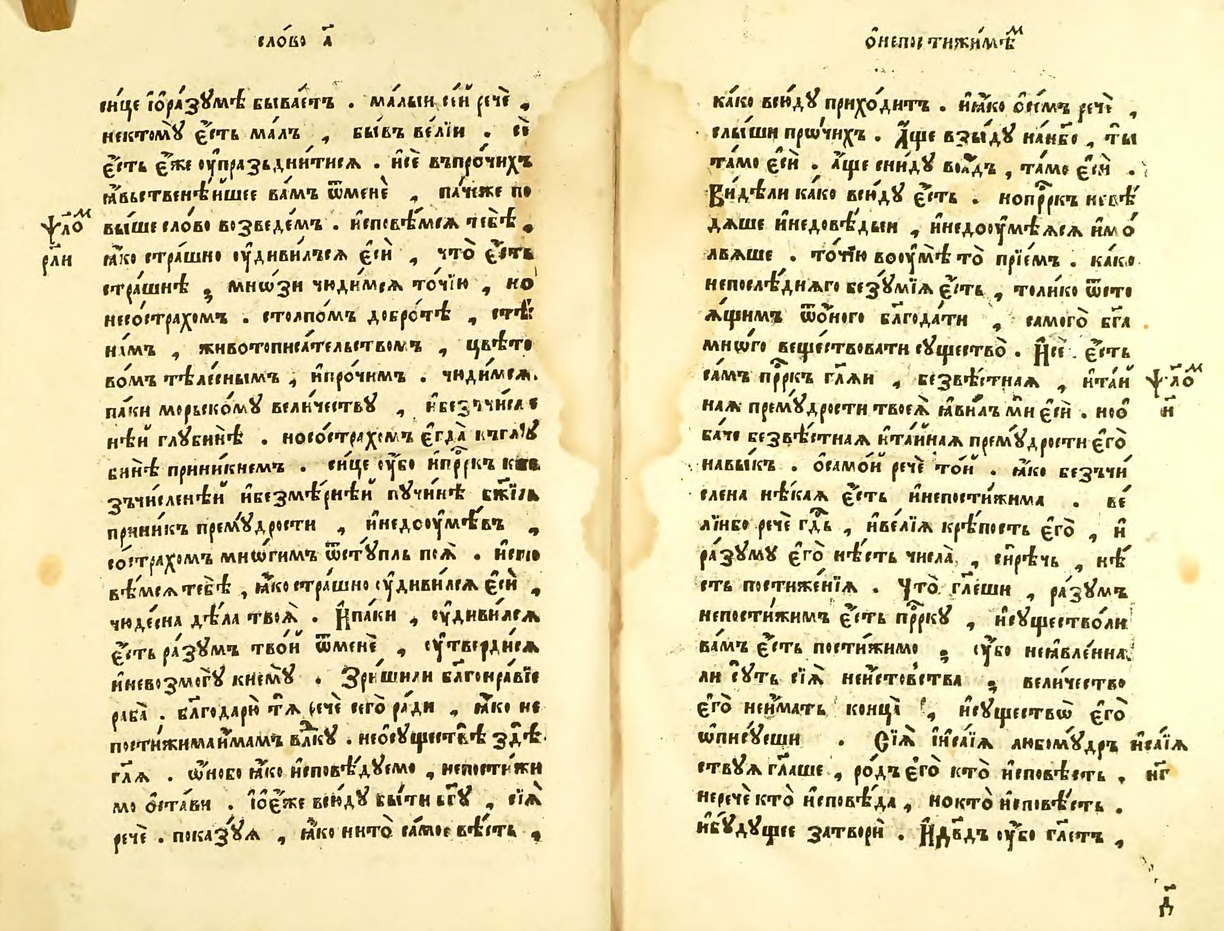 сло́во а҃
си́це і҆ѡ҆ра́зꙋмѣ быва́етъ . ма́лыи се́й речѐ ,
некто́мꙋ є҆́сть ма́лъ , бы́въ ве́лїи . сѐ
є҆́сть є҆́же оу҆пра́зьднитисѧ . и҆сѐ въпро́чихъ
ꙗ҆́вьственѣишее ва́мъ ѿменѐ , па́чеже по
вы́ше сло́во возведе́мъ . и҆сповѣ́мсѧ тебѣ̀ ,
ꙗ҆́ко стра́шно оу҆диви́лъсѧ є҆сѝ , что̀ є҆́сть
стра́шнѣ ; мно́ѕи чюди́мсѧ то́чїю , но
несо́страхомъ . столпо́мъ добро́тѣ , стѣ́
на́мъ , живописа́тельствомъ , цвѣ́то
во́мъ тѣле́снымъ , и҆про́чимъ . чюди́мсѧ
па́ки морьско́мꙋ вели́чествꙋ , и҆безъчи́сле
нѣй глꙋбинѣ̀ . носо́страхомъ є҆гда̀ къглꙋ
бинѣ̀ прини́кнемъ . си́це оу҆́бо и҆прⷪ҇ркъ кбе
зъчи́сленѣй и҆безмѣ́рнѣй пꙋчи́нѣ бж҃їѧ
прини́къ премꙋ́дрости , и҆недооу҆мѣ́въ ,
со́страхомъ мно́гимъ ѿстꙋпль поѧ̀ . и҆спо
вѣ́мсѧ тебѣ̀ , ꙗ҆́ко стра́шно оу҆диви́лсѧ є҆сѝ ,
чюде́сна дѣ́ла твоѧ̀ . И҆па́ки , оу҆диви́лсѧ
є҆́сть ра́зꙋмъ тво́й ѿменѐ , оу҆тверди́сѧ
и҆невозмогꙋ̀ кнемꙋ̀ . Зри́шили бл҃гонра́вїе
раба̀ . бл҃годарю̀ тѧ̀ речѐ сего̀ ра́ди , ꙗ҆́ко не
пости́жима и҆́мамъ влⷣкꙋ . несо́сꙋществѣ здѣ̀
гл҃ѧ . ѡ҆́нобо ꙗ҆́ко и҆сповѣ́дꙋемо , непости́жи
мо ѡ҆ста́ви . і҆ѡ҆є҆́же всю́дꙋ бы́ти бг҃ꙋ , сїѧ̀
речѐ . пока́зꙋѧ , ꙗ҆́ко нито̀ са́мое вѣ́сть ,
ѱало́ⷨ
рл҃и
ѡ҆непостижи́мѣⷨ
ка́ко всю́дꙋ прихо́дитъ . и҆ꙗ҆́ко ѡ҆се́мъ речѐ ,
слы́ши про́чихъ . А҆́ще взы́дꙋ нан҃бо , ты̀
та́мо є҆сѝ . а҆́ще сни́дꙋ воа҆́дъ , та́мо є҆сѝ .
Ви́дѣли ка́ко всю́дꙋ є҆́сть . нопрⷪ҇ркъ невѣ́
дѧше и҆недовѣ́дыи , и҆недооу҆мѣ́ѧсѧ и҆мо́
лвѧше . то́чїю воу҆мѣ̀ то̀ прїе́мъ . ка́ко
непослѣ́днѧго безꙋ́мїѧ є҆́сть , толи́ко ѿсто
ѧ́щимъ ѿо́ного бл҃года́ти , самого̀ бг҃а
мно́го веществова́ти сꙋщество̀ . И҆сѐ є҆́сть
са́мъ прⷪ҇ркъ гл҃ѧи , безвѣ́стнаѧ , и҆та́й
наѧ премꙋ́дрости твоеѧ̀ ꙗ҆ви́лъ мѝ є҆сѝ . ноѻ҆
ба́че безвѣ́стнаѧ и҆та́йнаѧ премꙋ́дрости є҆го̀
навы́къ . ѡ҆само́й речѐ то́й . ꙗ҆́ко безъчи́
слена нѣ́каѧ є҆́сть и҆непости́жима . ве́
лїибо речѐ гдⷭ҇ь , и҆ве́лїѧ крѣ́пость є҆го̀ , и҆
ра́зꙋмꙋ є҆го̀ нѣ́сть числа̀ , си́рѣчь , нѣ́
сть постиже́нїѧ . Что̀ гл҃еши , ра́зꙋмъ
непости́жимъ є҆́сть прⷪ҇ркꙋ , и҆сꙋщество́ли
ва́мъ є҆́сть пости́жимо ; оу҆́бо неꙗ҆вле́нна
ли сꙋ́ть сїѧ̀ неи́стовства ; вели́чество
є҆го̀ неи́мать конца̀ , и҆сꙋщество̀ є҆го̀
ѡ҆писꙋ́еши . Сїѧ̀ и҆са́їѧ любомꙋ́дръ
ствꙋѧ гл҃аше , ро́дъ є҆го̀ кто̀ и҆сповѣ́сть .
неречѐ кто̀ и҆сповѣ́да , нокто̀ и҆сповѣ́сть .
и҆бꙋ́дꙋщее затворѝ . И҆дв҃дъ оу҆́бо гл҃етъ ,
ѱало́ⷨ
н҃
и҆са́їѧ
нг҃
д҃